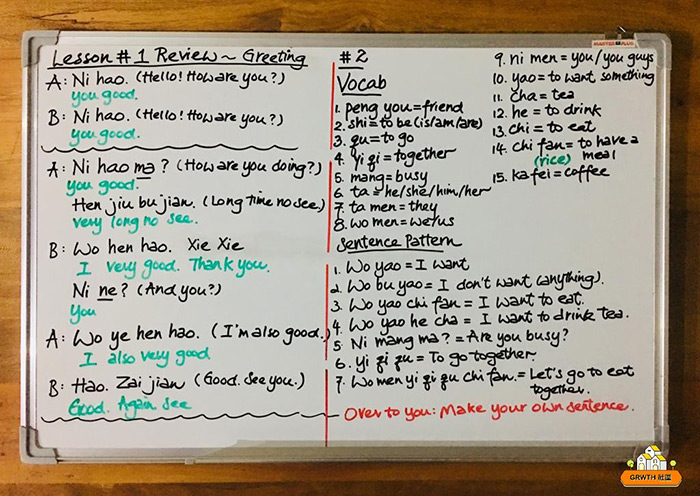 Lesson #1 Review ~ Greeting
A: Ni hao. (Hello! How are you?)
you good.
B: Ni hao. (Hello! How are you?)
you good.
A: Ni hao ma? (How are you doing?)
you good.
Hen jiu bu jian. (Long time no see.)
very long no see.
B: Wo hen hao. Xie Xie
I very good. Thank you.
Ni ne? (And you?)
you
A: Wo ye hen hao. (I'm also good.)
I also very good
B: Hao. Zai jian (Good. See you.)
Good. Again see
#2
Vocab
1. peng you = friend
2. shi = to be (is/am/are)
3. qu = to go
4. yi qi = together
5. mang = busy
6. ta = he/she/him/her
7. ta men = they
8. wo men = we/us
9. ni men = you/you guys
10. yao = to want something
11. cha = tea
12. he = to drink
13. chi = to eat
14. chi fan = to have a
(rice) meal
15. ka fei = coffee
Sentence Pattern
1. Wo yao = I want
2. Wo bu yao = I don't want (anything).
3. Wo yao chi fan = I want to eat.
4. Wo yao he cha = I want to drink tea.
5. Ni mang ma? = Are you busy?
6. yi qi qu = To go together.
7. Wo men yi qi qu chi fan. = Let's go to eat
together.
Over to you: Make your own sentence.
GRWTH 社區